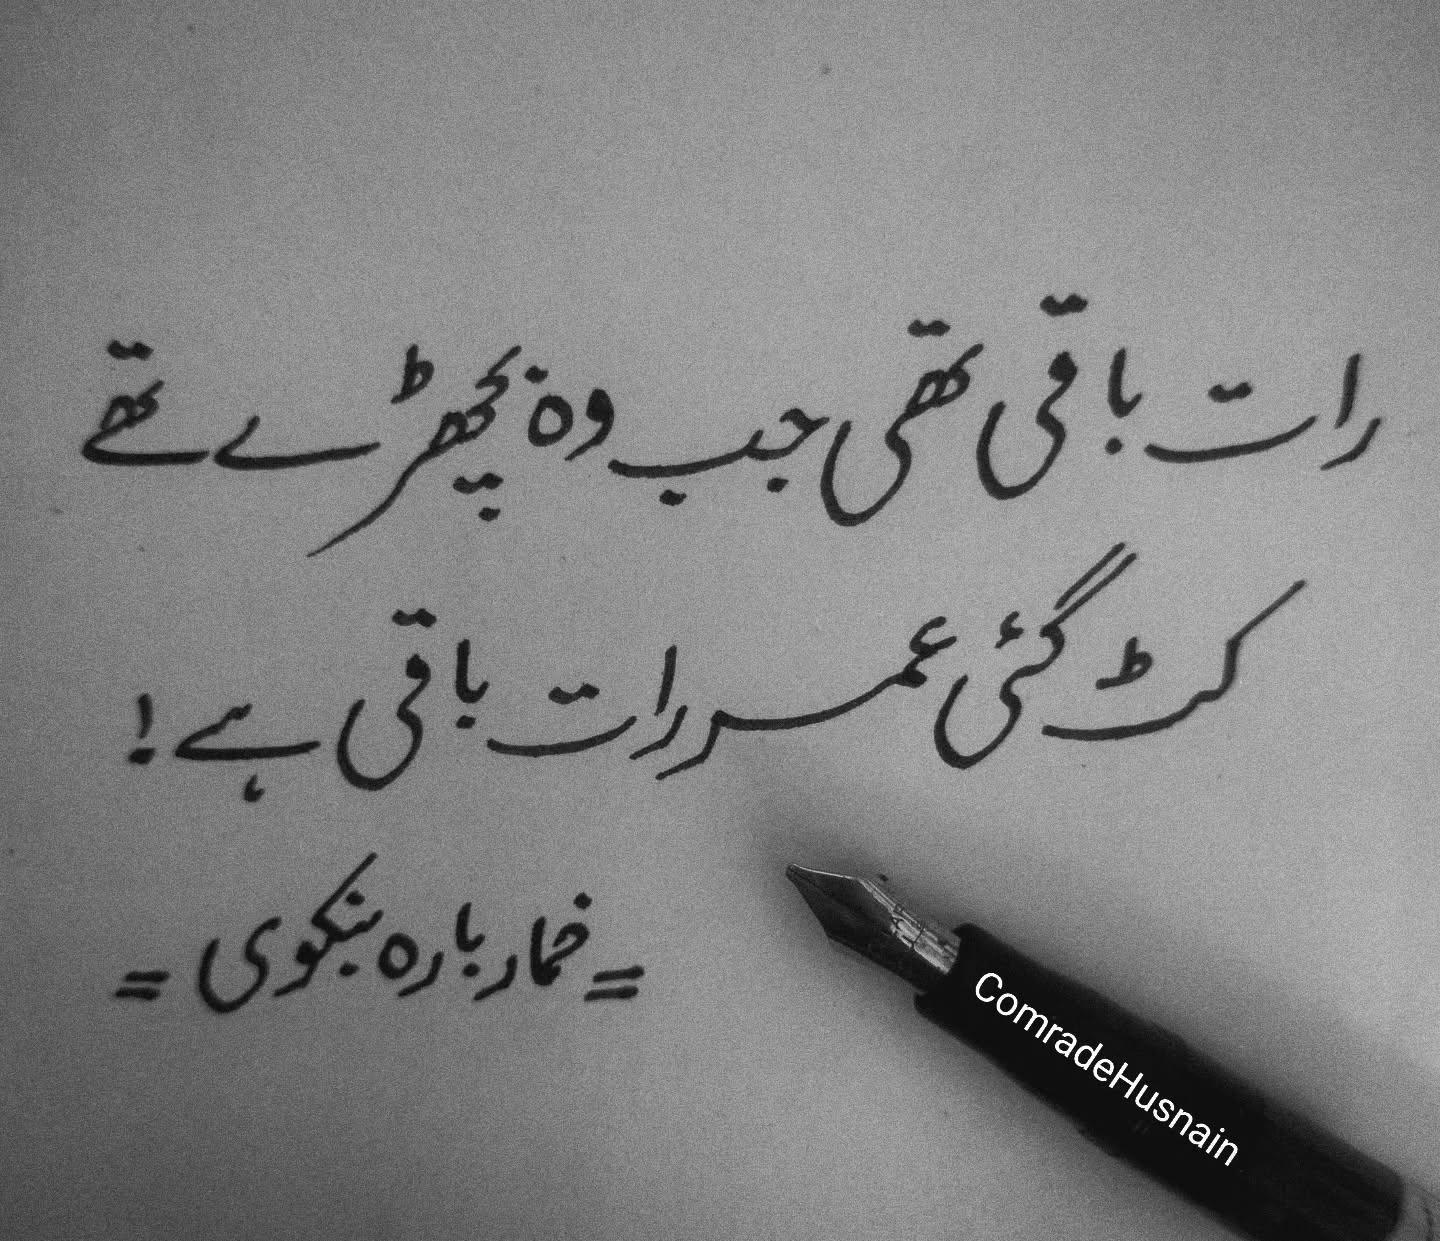 رات باقی تھی جب وہ بچھڑے تھے
کٹ گئی عمر رات باقی ہے!
= خمار بارہ بنکوی =
ComradeHusnain